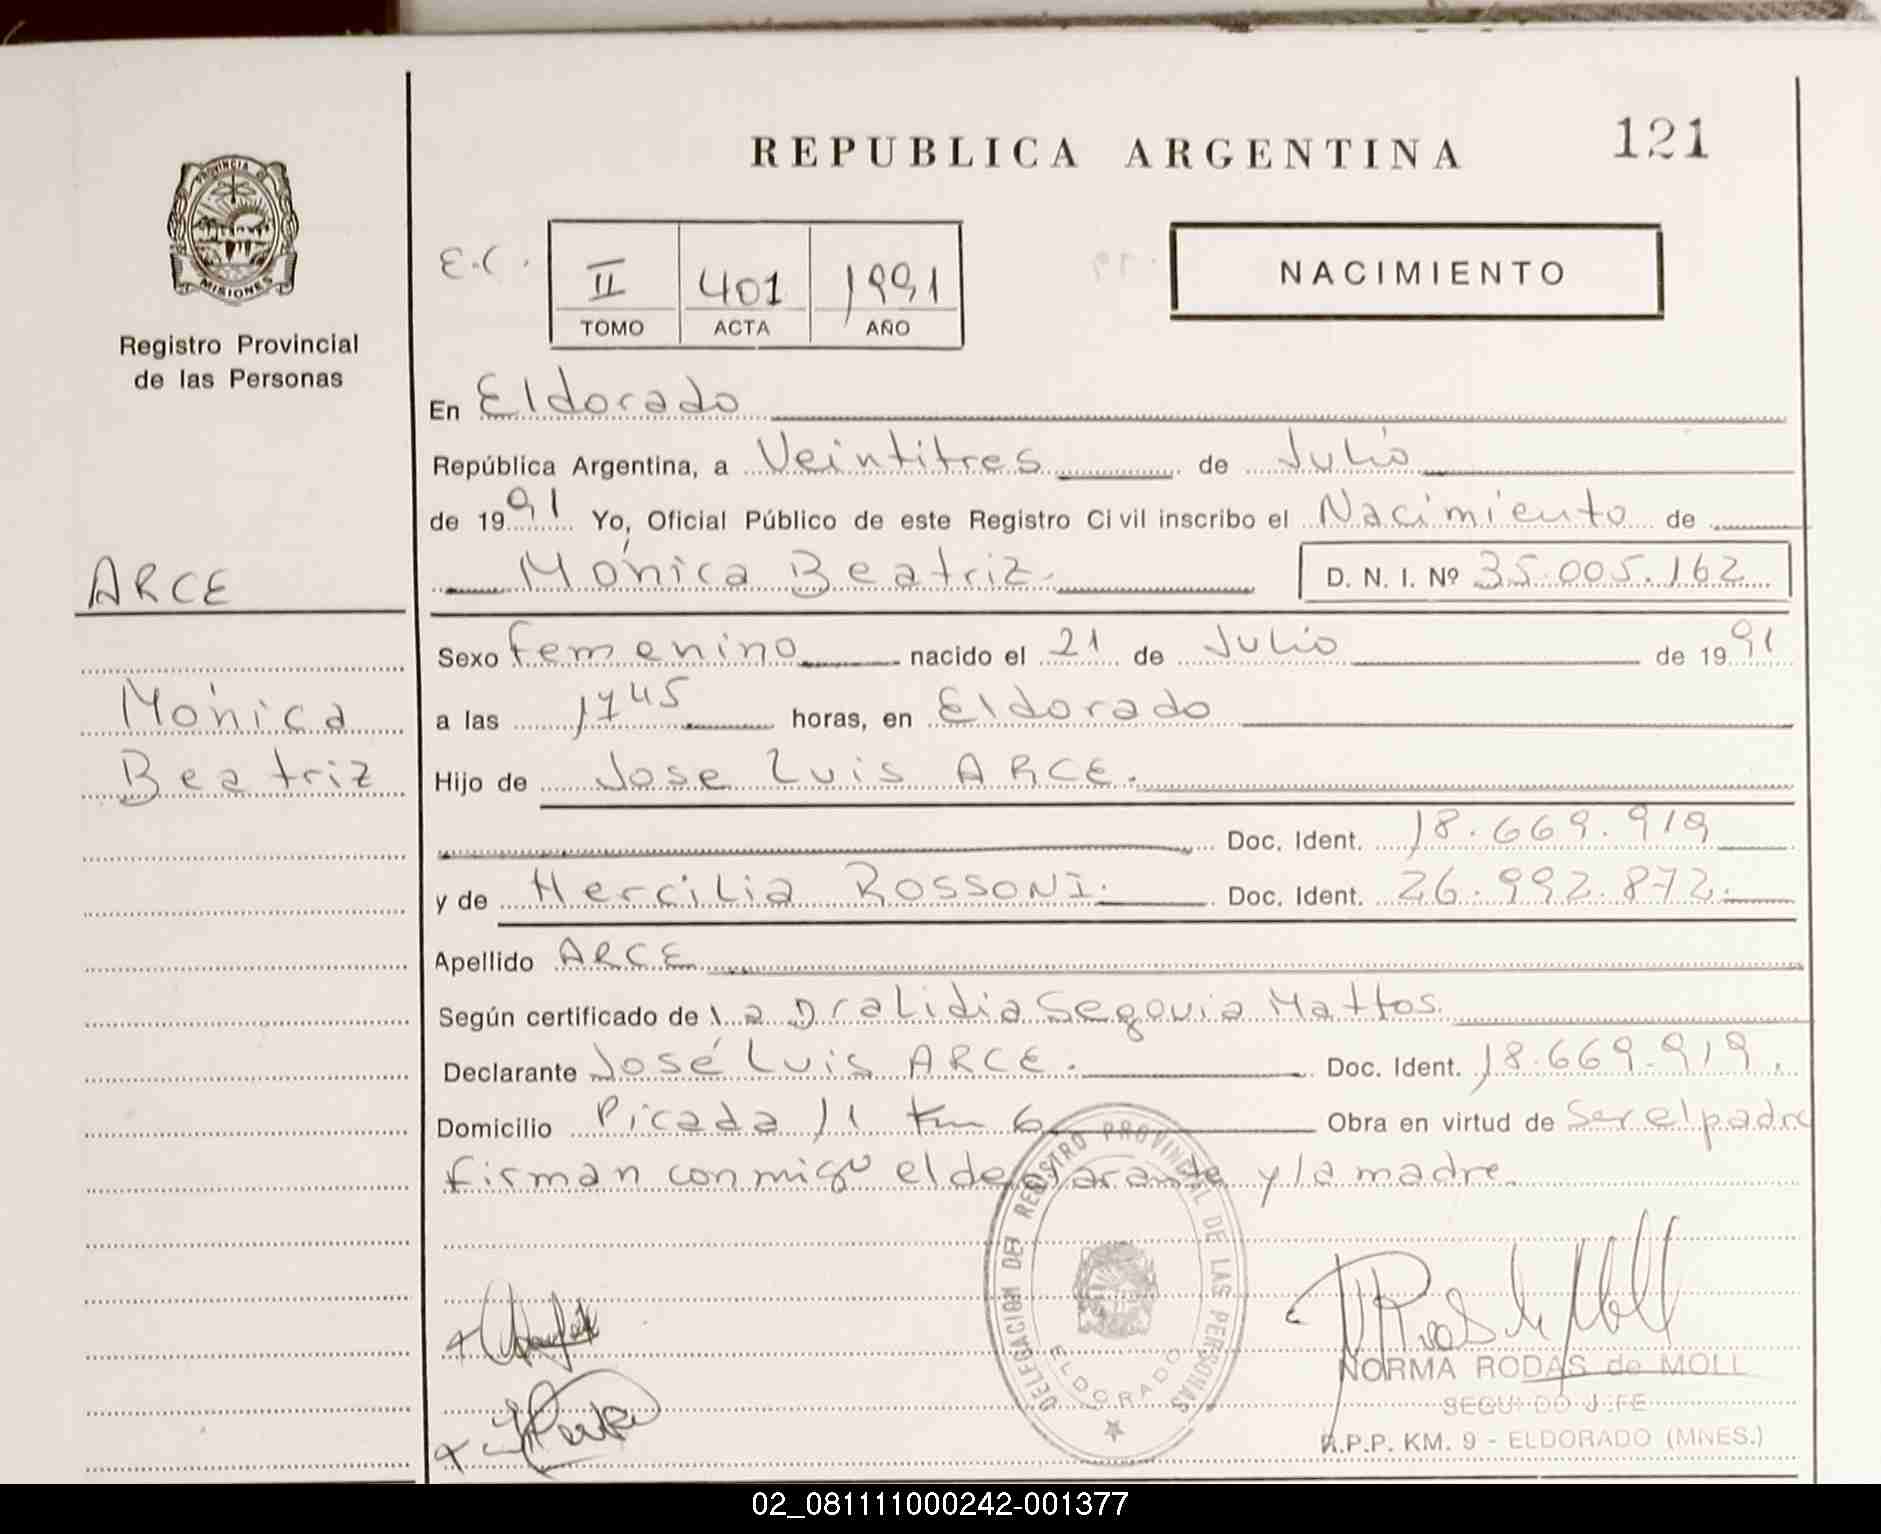 REPUBLICA ARGENTINA
121
PROVINCIA DE
MISIONES
Registro Provincial
de las Personas
E.C.
II 401 1991
TOMO ACTA AÑO
NACIMIENTO
En Eldorado
República Argentina, a Veintitres de Julio
de 1991 Yo, Oficial Público de este Registro Civil inscribo el Nacimiento de
Mónica Beatriz. D. N. I. Nº 35.005.162
ARCE
Mónica
Beatriz
Sexo femenino nacido el 21 de Julio de 1991
a las 1745 horas, en Eldorado
Hijo de Jose Luis ARCE.
Doc. Ident. 18.669.919
y de Hercilia ROSSONI. Doc. Ident. 26.992.872.
Apellido ARCE
Según certificado de la Dra Lidia Segovia Mattos.
Declarante José Luis ARCE. Doc. Ident. 18.669.919.
Domicilio Picada 11 Km 6 Obra en virtud de Ser el padre
firman conmigo el declarante y la madre.
DELEGACION DEL REGISTRO PROVINCIAL DE LAS PERSONAS
ELDORADO
NORMA RODAS de MOLL
SEGUNDO JEFE
R.P.P. KM. 9 - ELDORADO (MNES.)
02_081111000242-001377